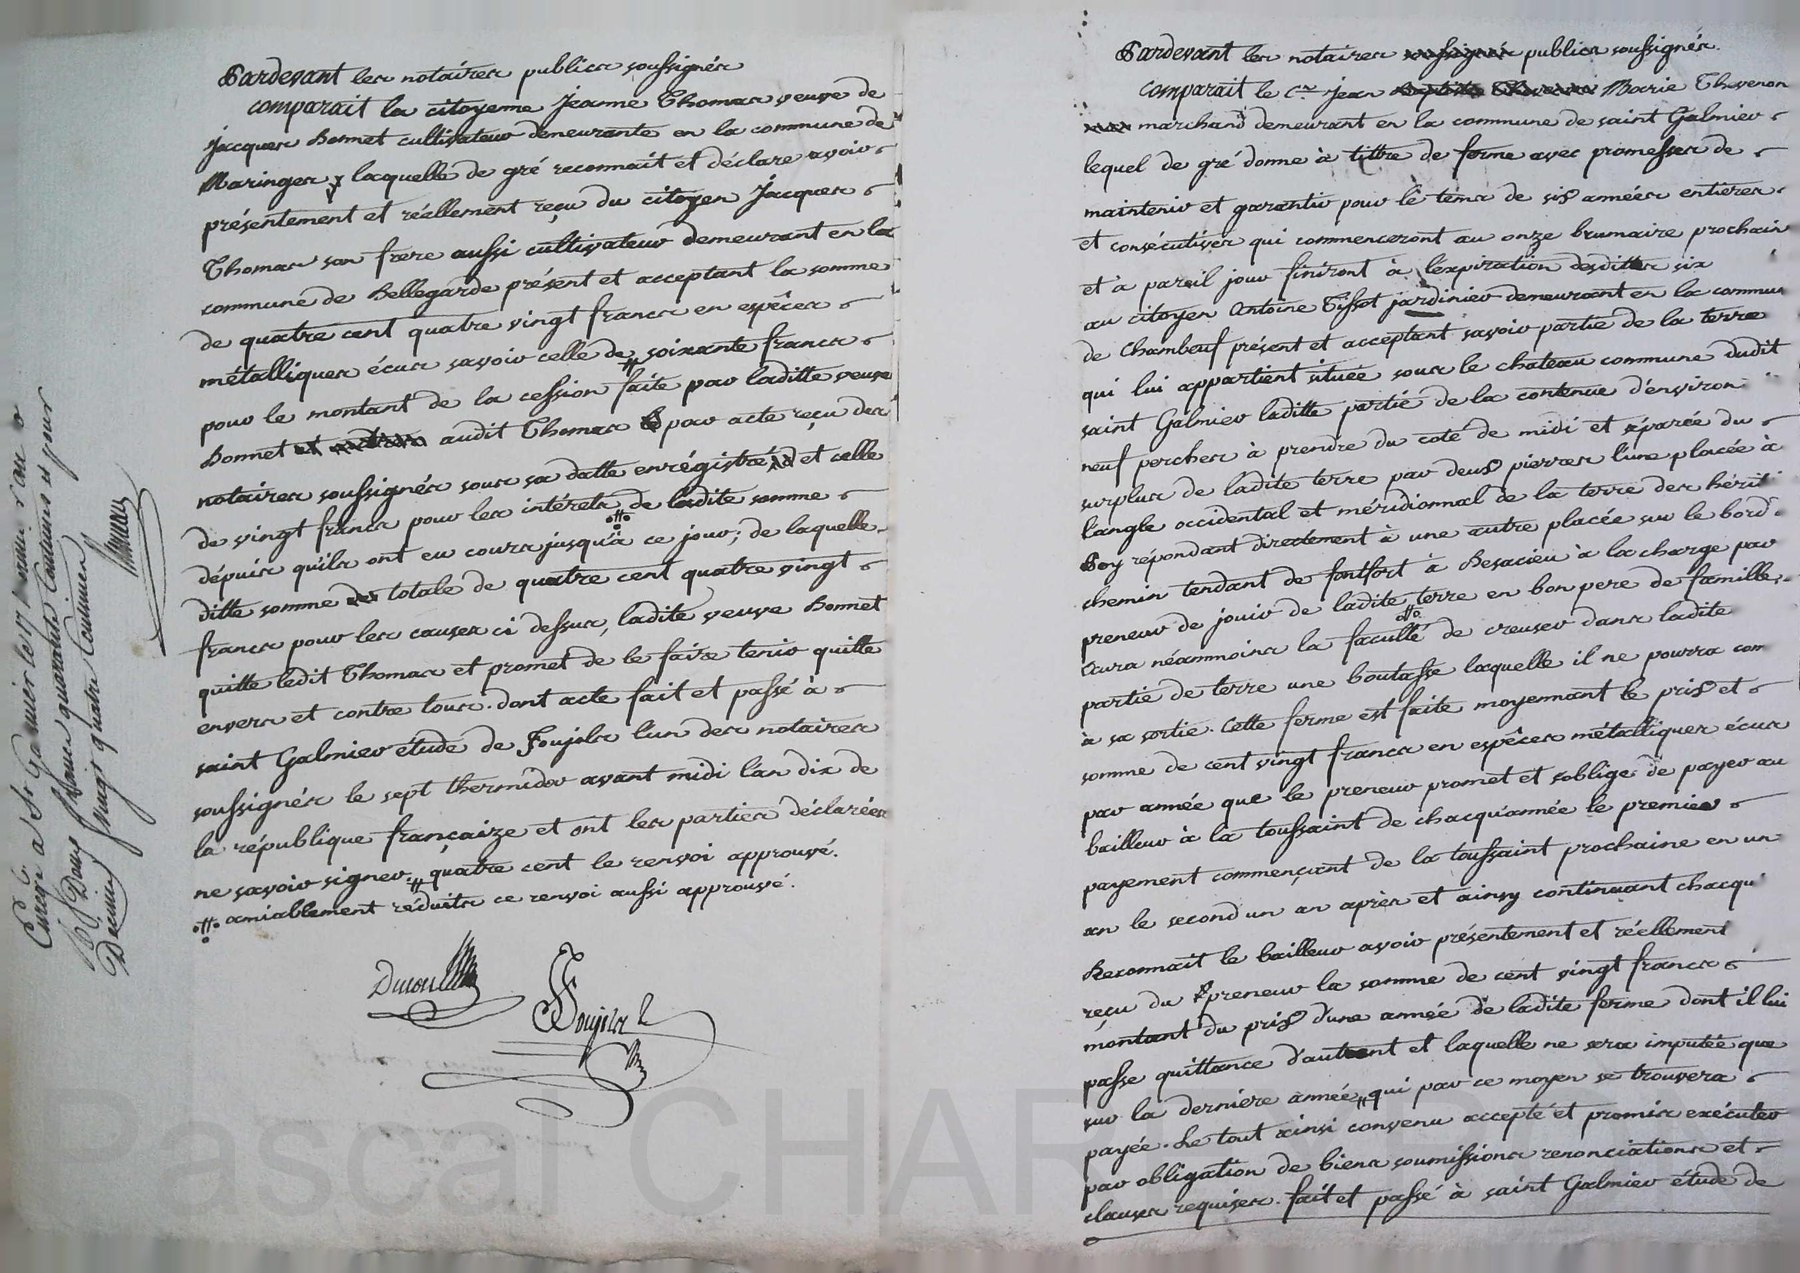 Pardevant les notaires publics soussignés
comparait la citoyenne Jeanne Thomas veuve de
jacques Bonnet cultivateur demeurante en la commune de
Maringes, laquelle de gré reconnait et déclare avoir
présentement et réellement reçu du citoyen Jacques
Thomas son frere aussi cultivateur demeurant en la
commune de Bellegarde présent et acceptant la somme
de quatre cent quatre vingt francs en espêces
métalliques écus savoir celle de soixante francs
pour le montant de la cession faite par laditte veuve
Bonnet audit Thomas par acte reçu des
notaires soussignés sous sa datte enrégistré et celle
de vingt francs pour les intérets de ladite somme
dépuis qu'ils ont eu cours jusqu'à ce jour; de laquelle
ditte somme totale de quatre cent quatre vingt
francs pour les causes ci dessus, ladite veuve Bonnet
quitte ledit Thomas et promet de le faire tenir quitte
envers et contre tous. dont acte fait et passé à
saint Galmier étude de Foujols l'un des notaires
soussignés le sept thermidor avant midi l'an dix de
la république françaize et ont les parties déclarées
ne savoir signer. quatre cent le renvoi approuvé.
amiablement réduits ce renvoi aussi approuvé.
Foujols
Enregé a St Galmier le 17
quarante centimes et pour
vingt quatre centimes
Pardevant les notaires publics soussignés.
comparait le Cen Jean Marie Thevenon
marchand demeurant en la commune de saint Galmier
lequel de gré donne à tittre de ferme avec promesses de
maintenir et garantir pour le tems de six années entières
et consécutives qui commenceront au onze brumaire prochain
et à pareil jour finiront à l'expiration desdittes six
au citoyen Antoine Tissot jardinier demeurant en la commun
de Chambeuf présent et acceptant savoir partie de la terre
qui lui appartient située sous le chateau commune dudit
saint Galmier laditte partie de la contenue d'environ
neuf perches à prendre du coté de midi et séparée du
surplus de ladite terre par deux pierres l'une placée à
l'angle occidental et méridionnal de la terre des hérit
Poy répondant directement à une autre placée sur le bord
chemin tendant de fontfort à Besacieu à la charge par
preneur de jouir de ladite terre en bon pere de famille,
aura néammoins la faculté de creuser dans ladite
partie de terre une boutasse laquelle il ne pourra com
à sa sortie. Cette ferme est faite moyennant le prix et
somme de cent vingt francs en espêces métalliques écus
par année que le preneur promet et s'oblige de payer au
bailleur à la toussaint de chacqu'année le premier
payement commençant de la toussaint prochaine en un
an le second un an après et ainsy continuant chacqu'
Reconnait le bailleur avoir présentement et réellement
reçu du preneur la somme de cent vingt francs
montant du prix d'une année de ladite ferme dont il lui
passe quittance d'autant et laquelle ne sera imputée que
sur la derniere année, qui par ce moyen se trouvera
payée. Le tout ainsi convenu accepté et promis exécuter
par obligation de biens soumissions renonciations et
clauses requises. fait et passé à saint Galmier étude de
Pascal CHAR